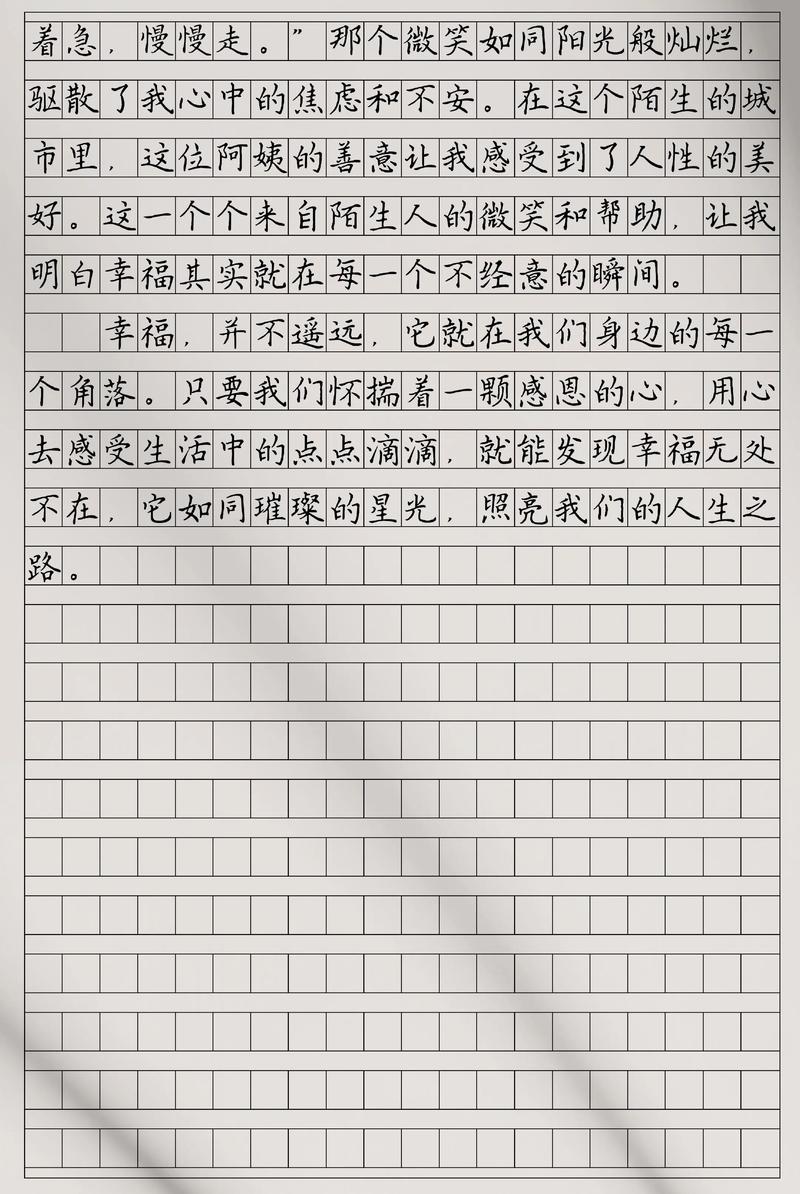 着急，慢慢走。”那个微笑如同阳光般灿烂，
驱散了我心中的焦虑和不安。在这个陌生的城
市里，这位阿姨的善意让我感受到了人性的美
好。这一个个来自陌生人的微笑和帮助，让我
明白幸福其实就在每一个不经意的瞬间。
幸福，并不遥远，它就在我们身边的每一
个角落。只要我们怀揣着一颗感恩的心，用心
去感受生活中的点点滴滴，就能发现幸福无处
不在，它如同璀璨的星光，照亮我们的人生之
路。